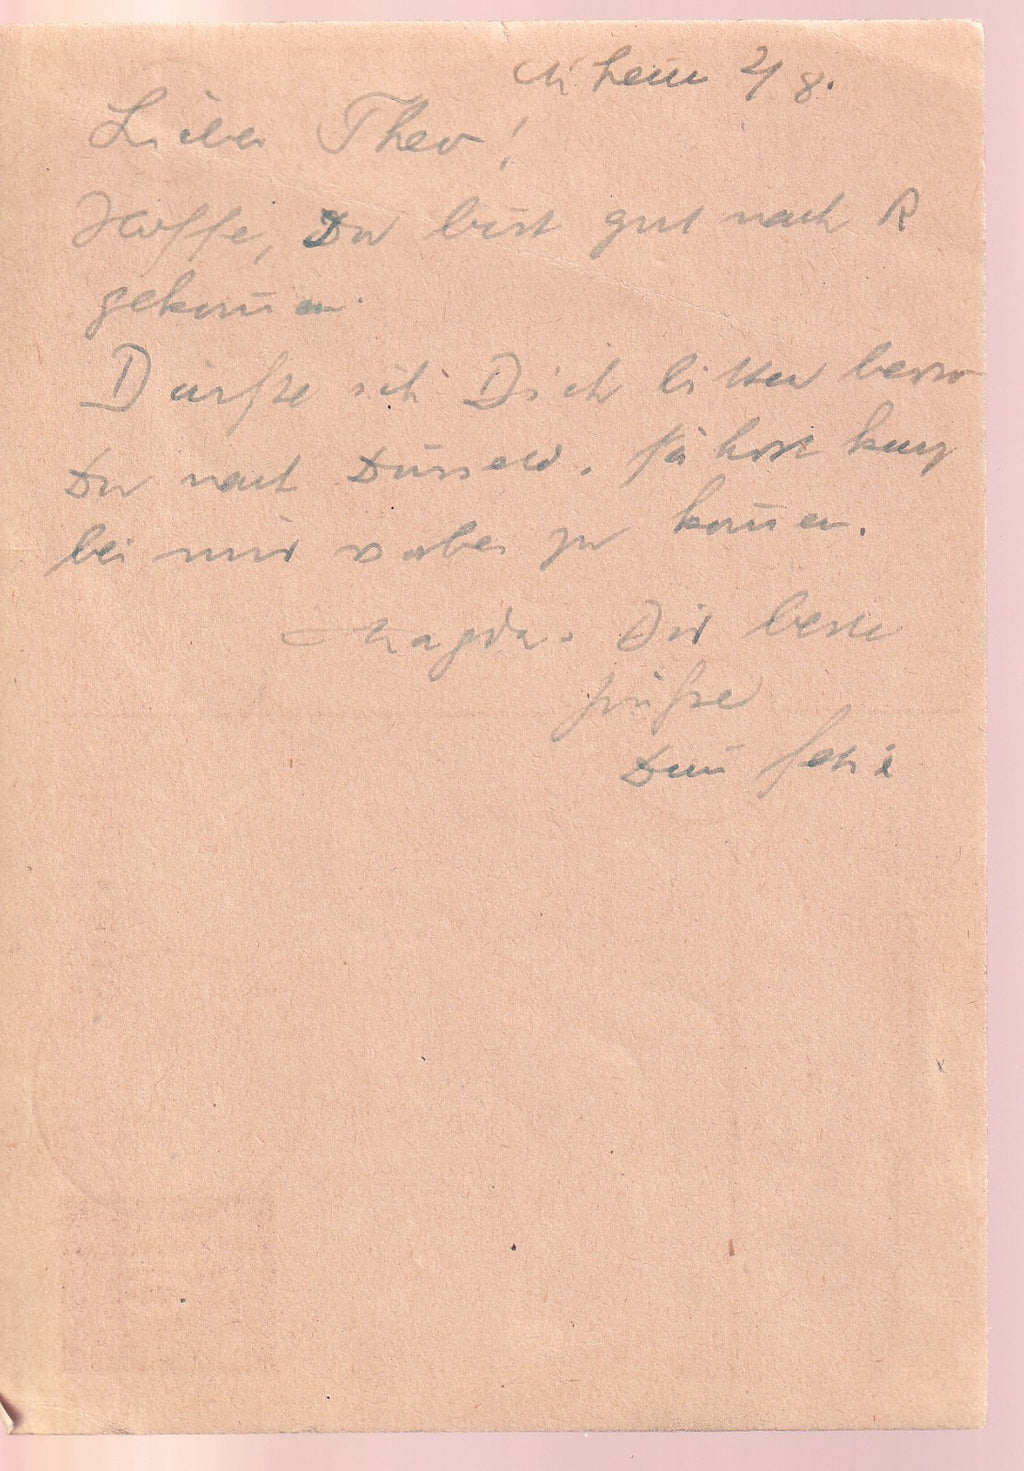 M'heim 2/8.
Lieber Theo!
Hoffe, Du bist gut nach R
gekom̄en.
Dürfte ich Dich bitten bevor
Du nach Düsseld. fährst kurz
bei mir vorbei zu kom̄en.
Magda. Dir beste
Grüße
Dein